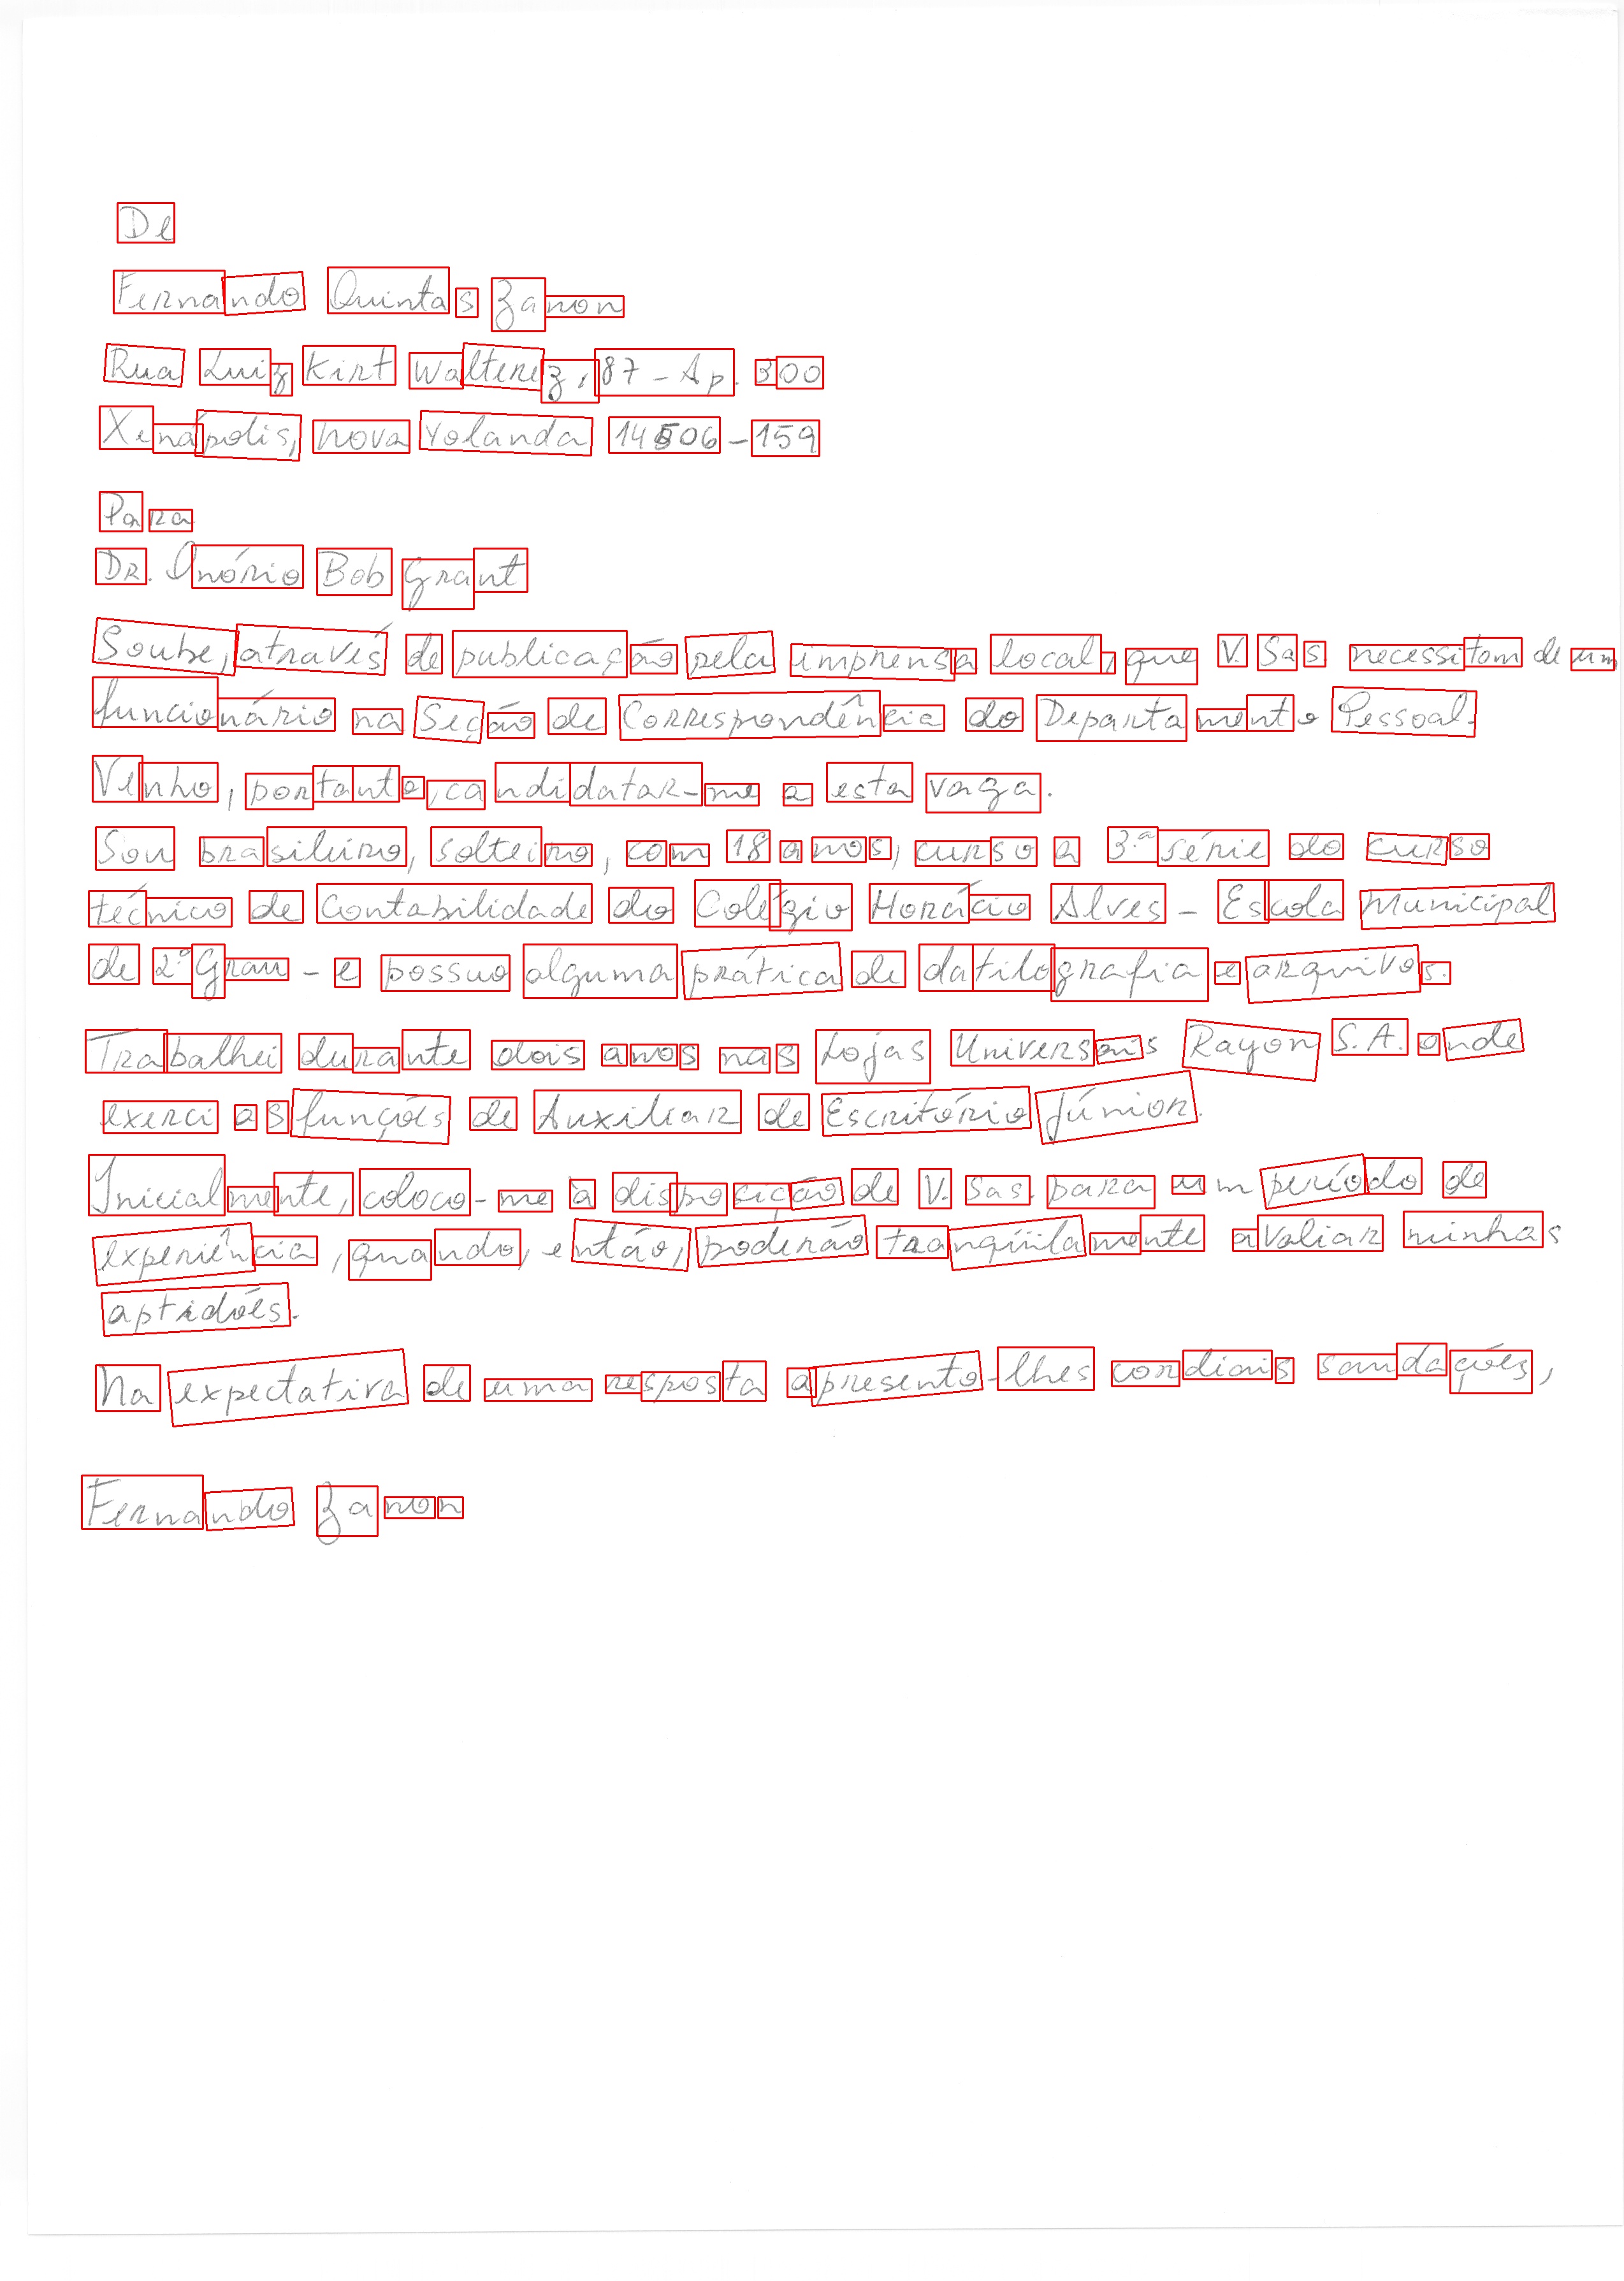 De
Fernando Quintas Zanon
Rua Luiz Kirt Walterez, 87 - Ap. 300
Xenápolis, Nova Yolanda 14506-159
Para
Dr. Onório Bob Grant
Soube, através de publicação pela imprensa local, que V. Sas necessitam de um
funcionário na Seção de Correspondência do Departamento Pessoal.
Venho, portanto, candidatar-me a esta vaga.
Sou brasileiro, solteiro, com 18 anos, curso a 3ª série do curso
técnico de Contabilidade do Colégio Horácio Alves - Escola Municipal
de 2º Grau - e possuo alguma prática de datilografia e arquivos.
Trabalhei durante dois anos nas Lojas Universais Rayon S.A. onde
exerci as funções de Auxiliar de Escritório Júnior.
Inicialmente, coloco-me à disposição de V. Sas. para um período de
experiência, quando, então, poderão tranqüilamente avaliar minhas
aptidões.
Na expectativa de uma resposta apresento-lhes cordiais saudações,
Fernando Zanon